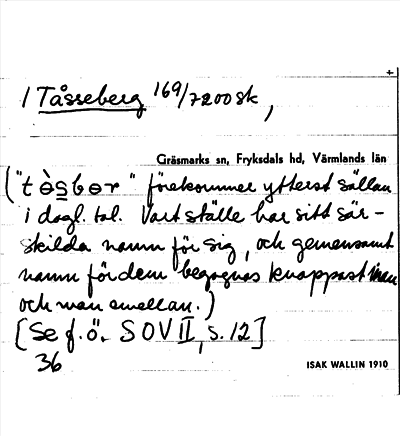 1 Tåsseberg 169/7200 sk,
Gräsmarks sn, Fryksdals hd, Värmlands län
("tòsbər" förekommer ytterst sällan
i dagl. tal. Vart ställe har sitt sär-
skilda namn för sig, och gemensamt
namn för dem begagnas knappast man
och man emellan.)
[Se f.ö. SOV II, s. 12]
36
ISAK WALLIN 1910